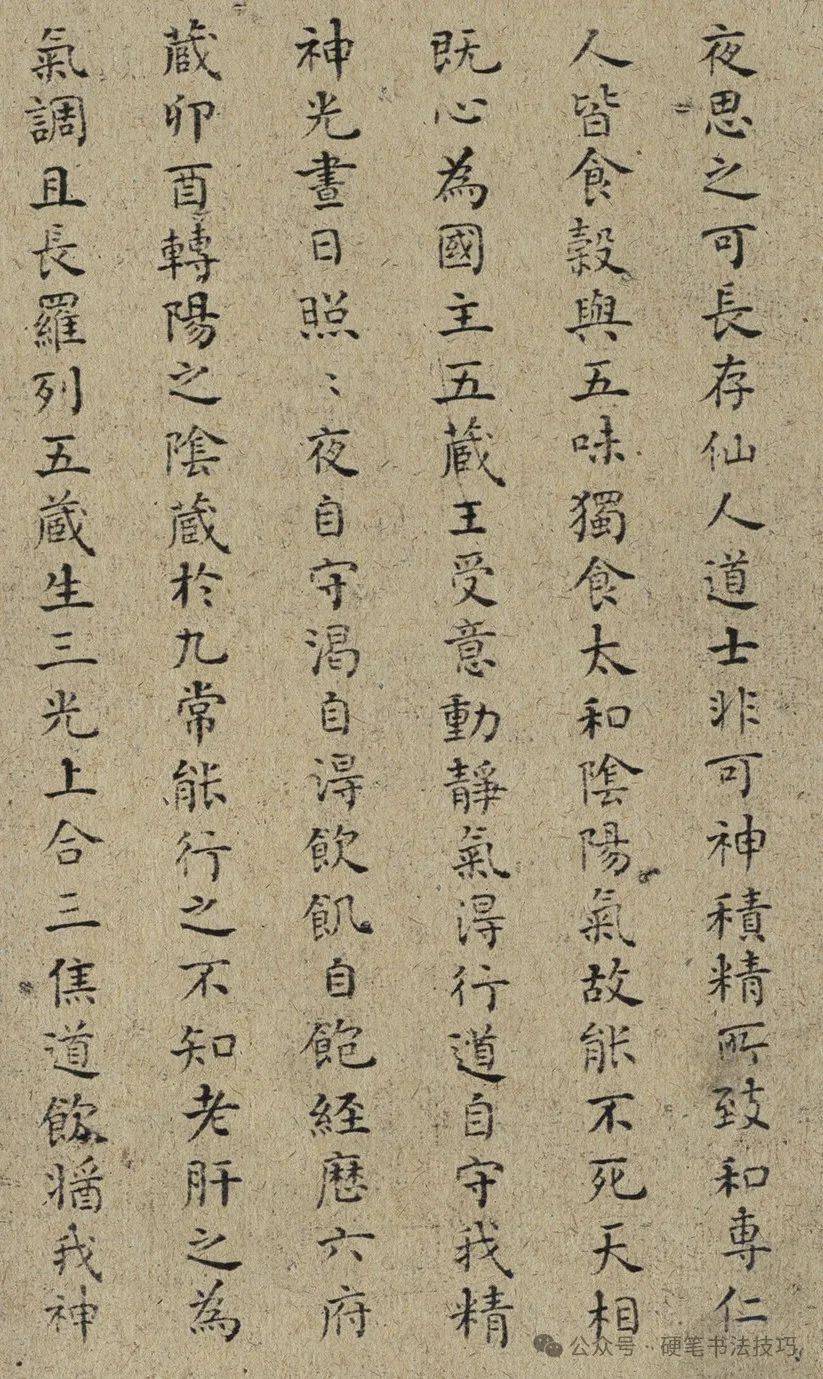 夜思之可長存仙人道士非可神積精所致和専仁
人皆食穀與五味獨食太和陰陽氣故能不死天相
既心為國主五蔵王受意動静氣得行道自守我精
神光晝日照〻夜自守渴自得飲飢自飽経歷六府
蔵卯酉轉陽之陰蔵於九常能行之不知老肝之為
氣調且長羅列五蔵生三光上合三焦道飲醬我神
公众号·硬笔书法技巧